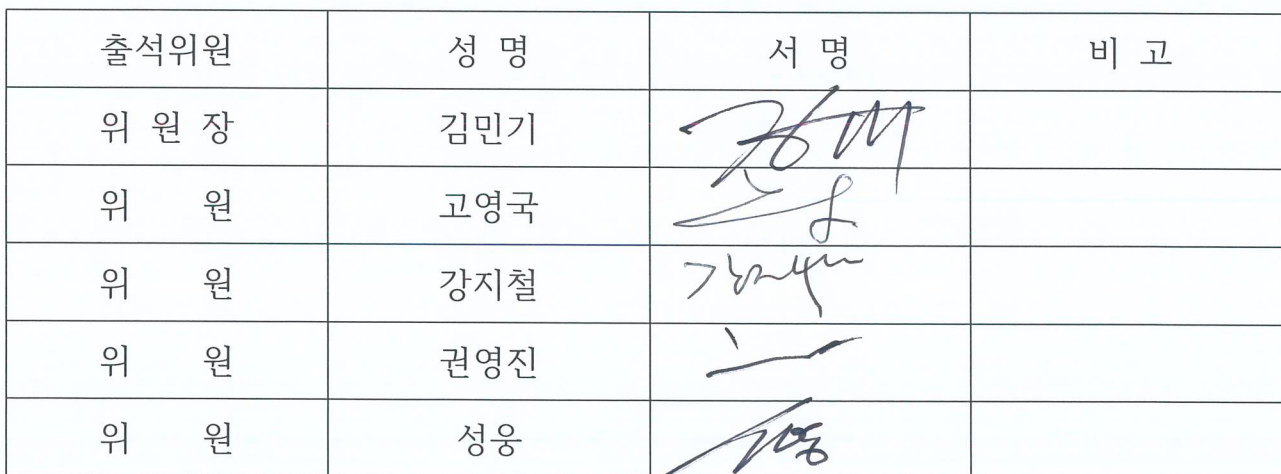 출석위원 성 명 서 명 비 고
위 원 장 김민기
위 원 고영국
위 원 강지철
위 원 권영진
위 원 성웅